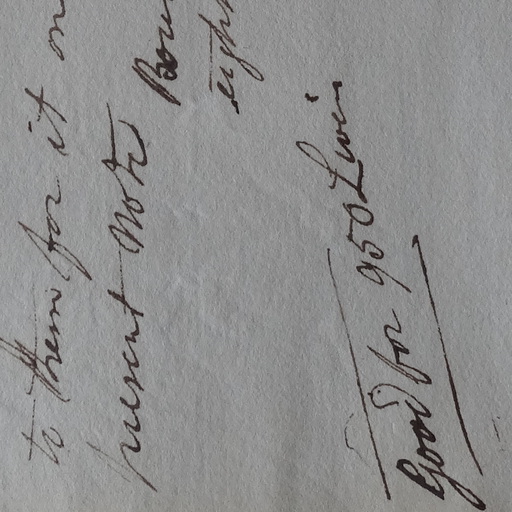 to them for it on
present Note Bou
eigh
Good for 950 Livin